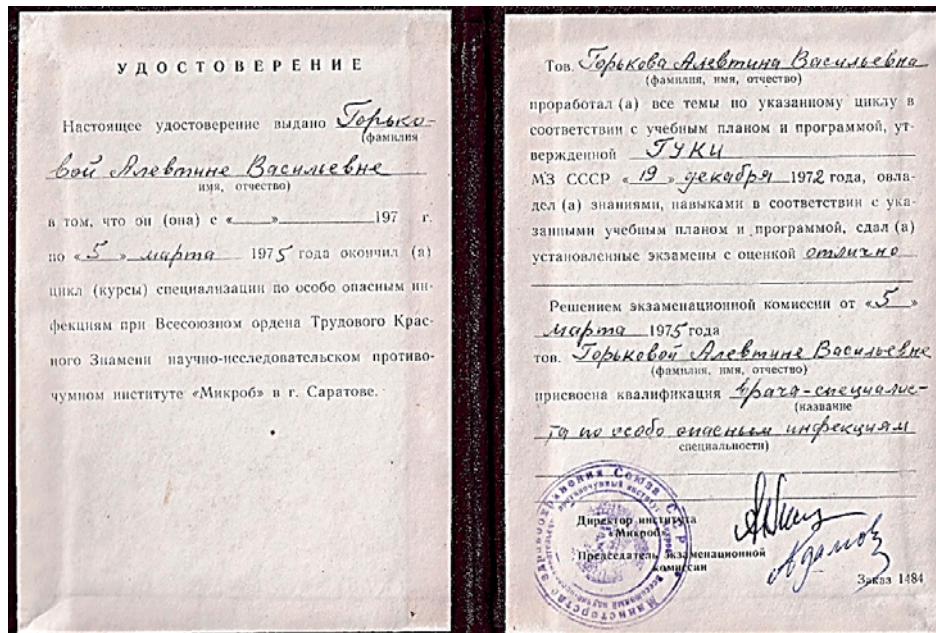 УДОСТОВЕРЕНИЕ
Настоящее удостоверение выдано Горько-
(фамилия
вой Алевтине Васильевне
имя, отчество)
в том, что он (она) с «___»___________197 г.
по «5» марта 1975 года окончил (а)
цикл (курсы) специализации по особо опасным ин-
фекциям при Всесоюзном ордена Трудового Крас-
ного Знамени научно-исследовательском противо-
чумном институте «Микроб» в г. Саратове.
Тов. Горькова Алевтина Васильевна
(фамилия, имя, отчество)
проработал (а) все темы по указанному циклу в
соответствии с учебным планом и программой, ут-
вержденной ГУКИ
МЗ СССР «19» декабря 1972 года, овла-
дел (а) знаниями, навыками в соответствии с ука-
занными учебным планом и программой, сдал (а)
установленные экзамены с оценкой отлично
Решением экзаменационной комиссии от «5»
марта 1975 года
тов. Горьковой Алевтине Васильевне
(фамилия, имя, отчество)
присвоена квалификация врача-специалис-
(название
та по особо опасным инфекциям
специальности)
Директор института
«Микроб»
Председатель экзаменационной
комиссии
Заказ 1484
Министерство здравоохранения Союза ССР